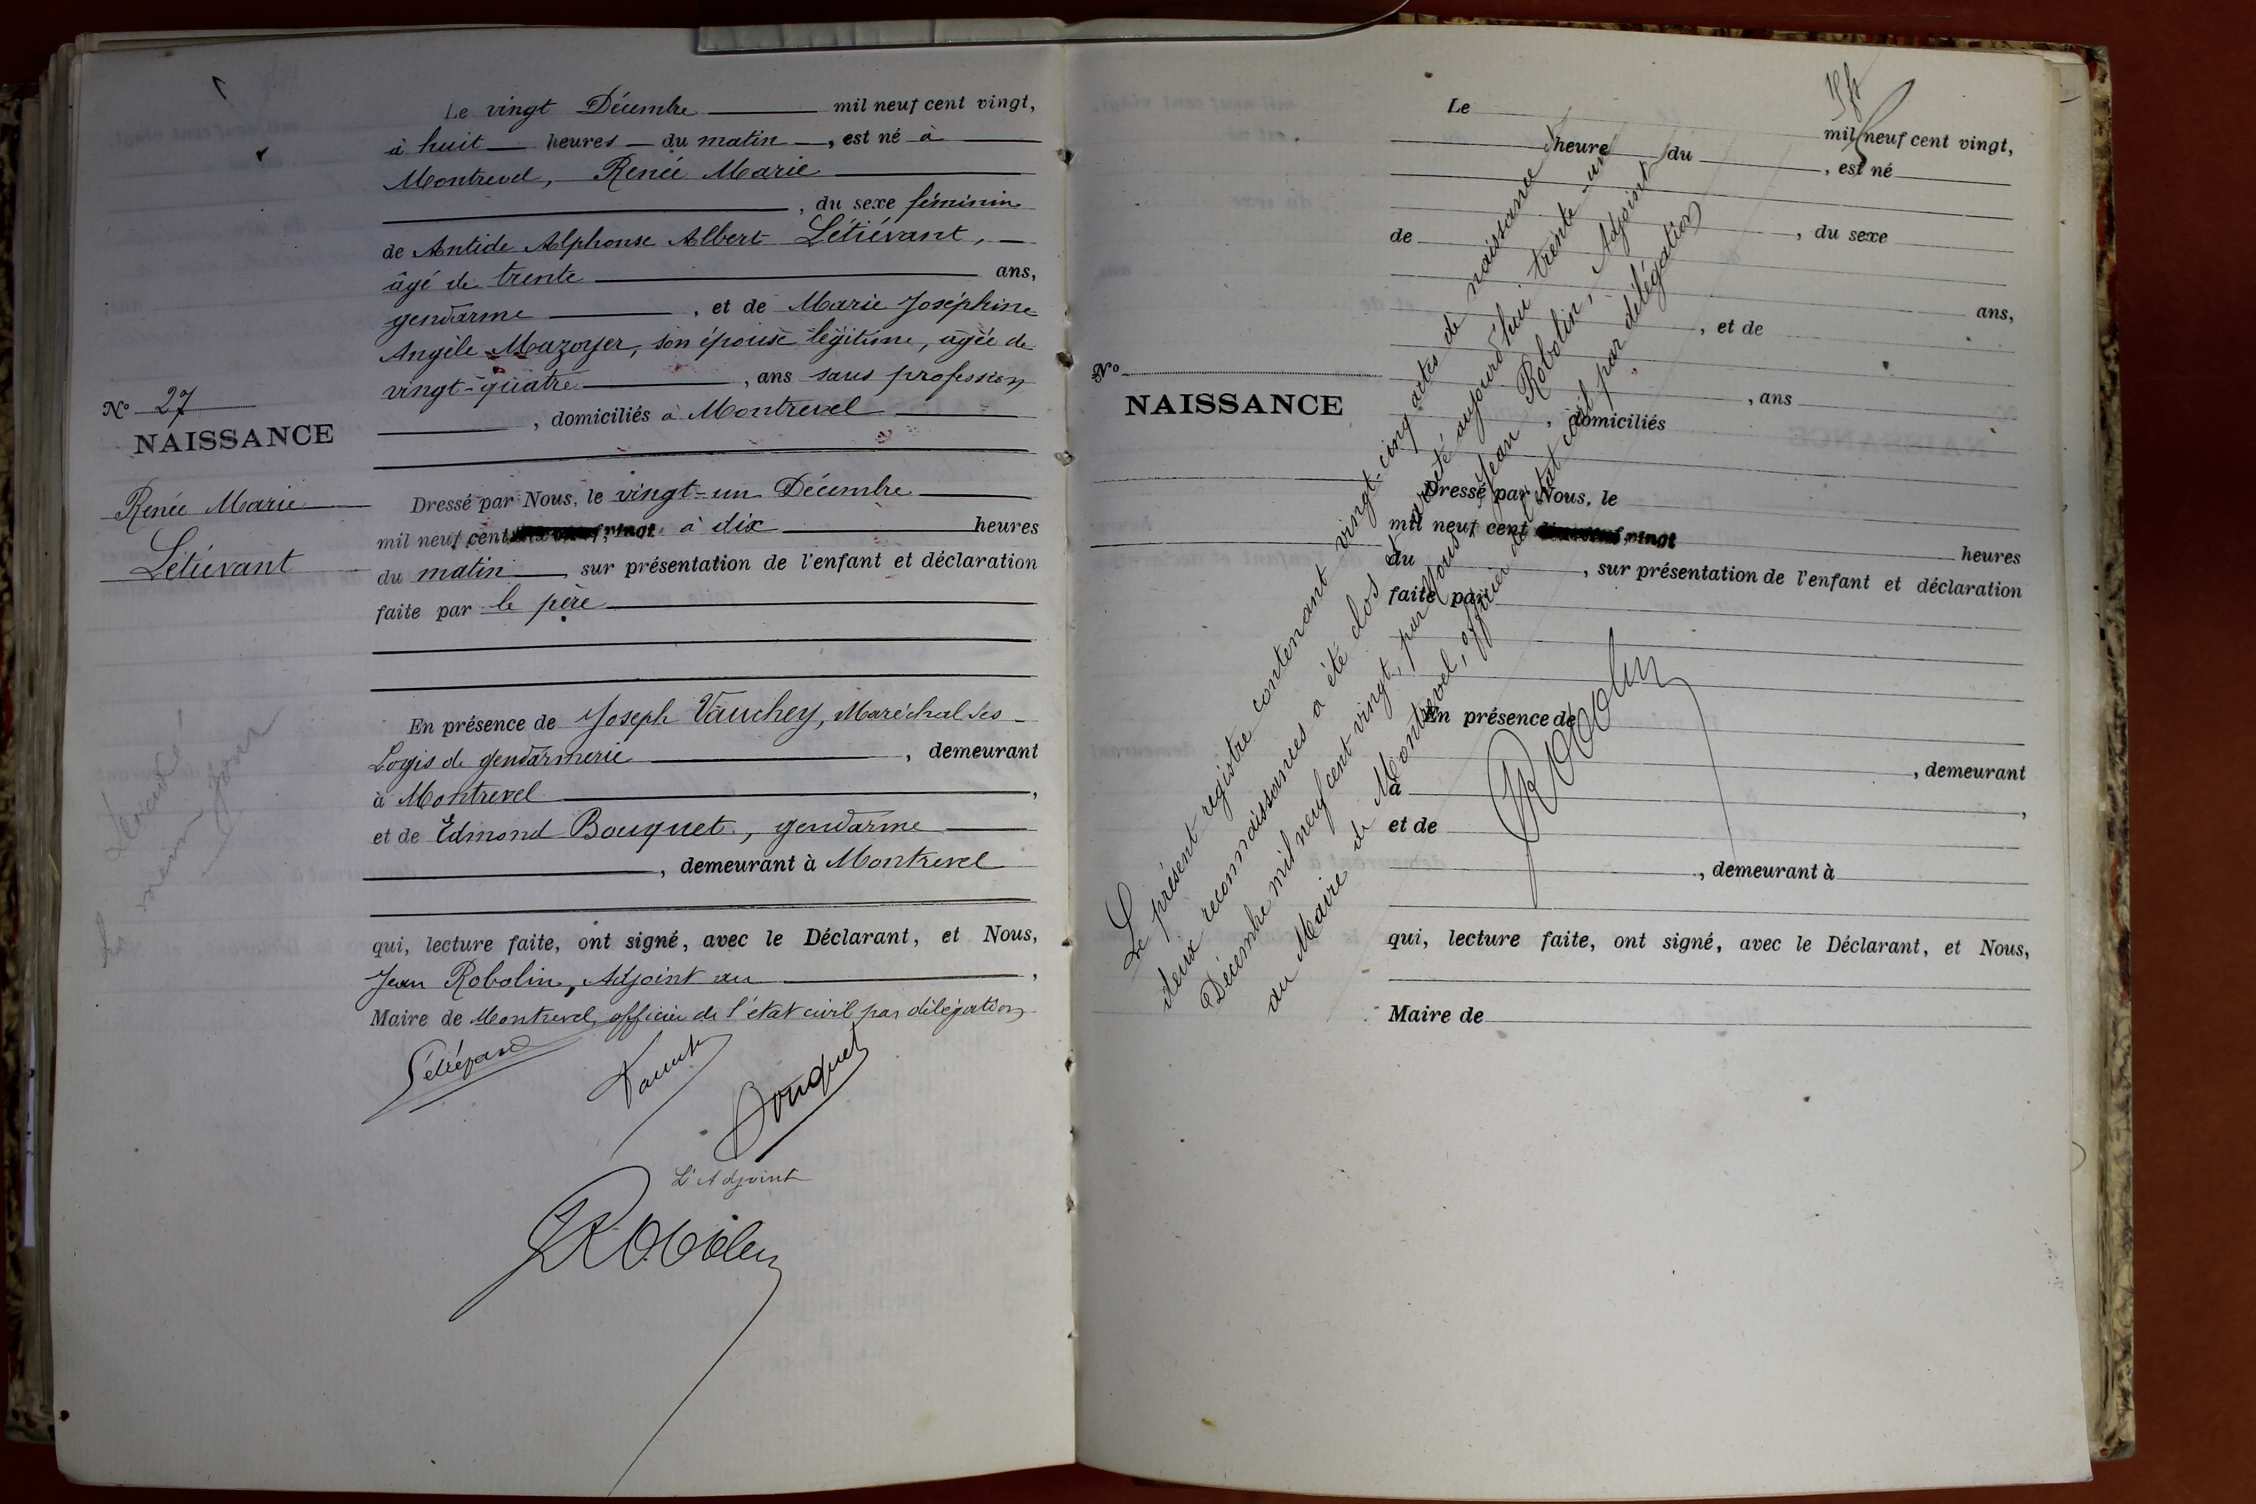 Le vingt Décembre mil neuf cent vingt,
à huit heures du matin, est né à
Montrevel, Renée Marie
, du sexe féminin
de Antide Alphonse Albert Létiévant,
âgé de trente ans,
gendarme, et de Marie Joséphine
Angèle Mazoyer, son épouse légitime, agée de
vingt-quatre, ans sans profession
, domiciliés à Montrevel
N° 27
NAISSANCE
Renée Marie
Létiévant
Dressé par Nous, le vingt-un Décembre
mil neuf cent vingt à dix heures
du matin, sur présentation de l'enfant et déclaration
faite par le père
En présence de Joseph Vauchey, Maréchal des
Logis de gendarmerie, demeurant
à Montrevel,
et de Edmond Bouquet, gendarme
, demeurant à Montrevel
qui, lecture faite, ont signé, avec le Déclarant, et Nous,
Jean Robolin, Adjoint au,
Maire de Montrevel, officier de l'état civil par délégation
Létiévant
Bouquet
L'Adjoint
JRobolin
Le
mil neuf cent vingt,
heure du, est né
de, du sexe
ans,
, et de
N°
NAISSANCE
, ans
, domiciliés
Dressé par Nous, le
mil neuf cent vingt
heures
du, sur présentation de l'enfant et déclaration
faite par
En présence de
, demeurant
à,
et de
, demeurant à
qui, lecture faite, ont signé, avec le Déclarant, et Nous,
Maire de
Le présent registre contenant vingt-cinq actes de naissance
deux reconnaissances a été clos et arrêté aujourd'hui trente-un
Décembre mil neuf cent vingt, par Nous Jean Robolin, Adjoint
au Maire de Montrevel, officier de l'état civil par délégation
JRobolin